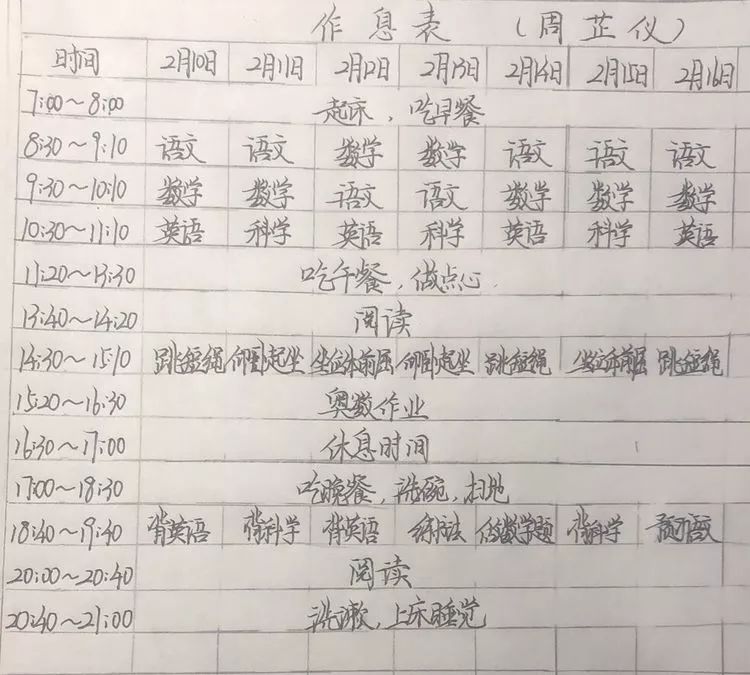 作息表 (周芷仪)
时间 2月10日 2月11日 2月12日 2月13日 2月14日 2月15日 2月16日
7:00~8:00 起床,吃早餐
8:30~9:10 语文 语文 数学 数学 语文 语文 语文
9:30~10:10 数学 数学 语文 语文 数学 数学 数学
10:30~11:10 英语 科学 英语 科学 英语 科学 英语
11:20~13:30 吃午餐,做点心.
13:40~14:20 阅读
14:30~15:10 跳短绳 仰卧起坐 坐位体前屈 仰卧起坐 跳短绳 坐位体前屈 跳短绳
15:20~16:30 奥数作业
16:30~17:00 休息时间
17:00~18:30 吃晚餐,洗碗,扫地
18:40~19:40 背英语 背科学 背英语 练书法 做数学题 背科学 预习语文
20:00~20:40 阅读
20:40~21:00 洗漱,上床睡觉